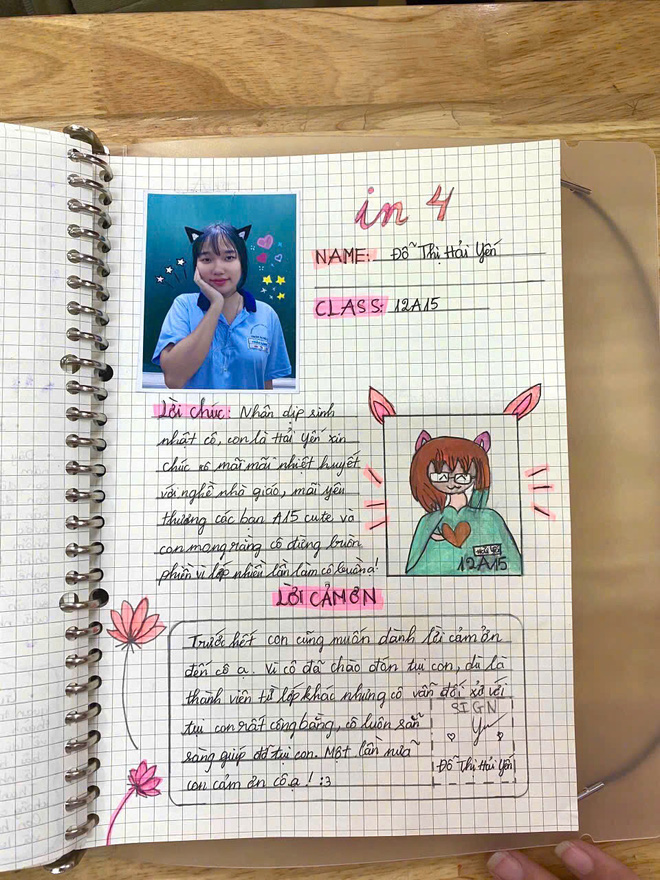 in 4
NAME: Đỗ Thị Hải Yến
CLASS: 12A15
Lời chúc: Nhân dịp sinh
nhật cô, con là Hải Yến xin
chúc cô mãi mãi nhiệt huyết
với nghề nhà giáo, mãi yêu
thương các bạn A15 cute và
con mong rằng cô đừng buồn
phiền vì lớp nhiều lần làm cô buồn ạ!
12A15
LỜI CẢM ƠN
Trước hết con cũng muốn dành lời cảm ơn
đến cô ạ. Vì cô đã chào đón tụi con, dù là
thành viên từ lớp khác nhưng cô vẫn đối xử với
tụi con rất công bằng, cô luôn sẵn
sàng giúp đỡ tụi con. Một lần nữa
con cảm ơn cô ạ! :3
SIGN
Đỗ Thị Hải Yến